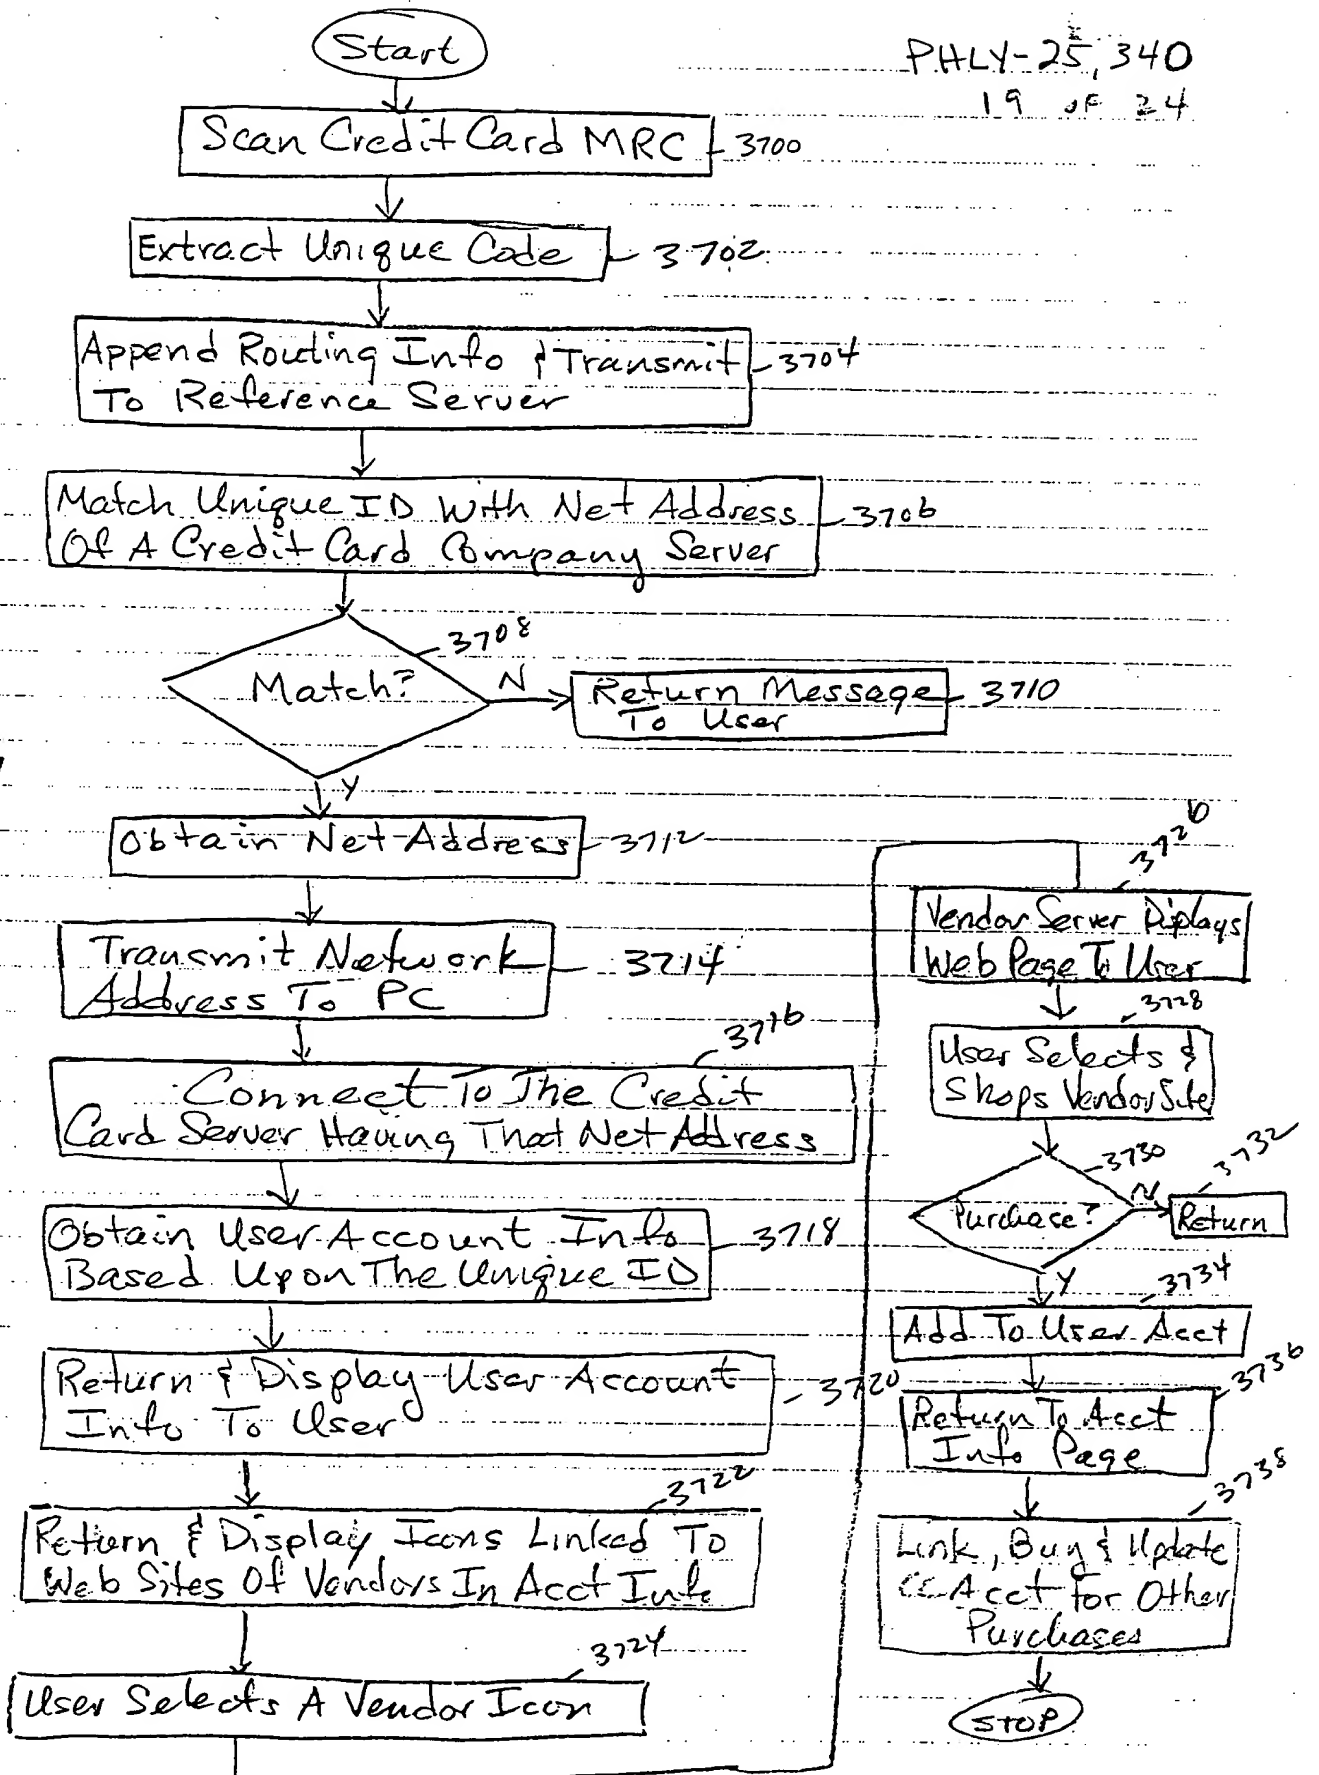 Start
PHLY-25,340
19 OF 24
Scan Credit Card MRC
3700
Extract Unique Code
3702
Append Routing Info & Transmit
To Reference Server
3704
Match Unique ID With Net Address
Of A Credit Card Company Server
3706
3708
Match?
N
Return Message
To User
3710
Y
Obtain Net Address
3712
Transmit Network
Address To PC
3714
3716
Connect To The Credit
Card Server Having That Net Address
Obtain User Account Info
Based Upon The Unique ID
3718
Return & Display User Account
Info To User
3720
3722
Return & Display Icons Linked To
Web Sites Of Vendors In Acct Info
3724
User Selects A Vendor Icon
3726
Vendor Server Diplays
Web Page To User
3728
User Selects &
Shops Vendor Site
3730
Purchase?
N
3732
Return
Y
3734
Add To User Acct
3736
Return To Acct
Info Page
3738
Link, Buy & Update
CC Acct For Other
Purchases
STOP